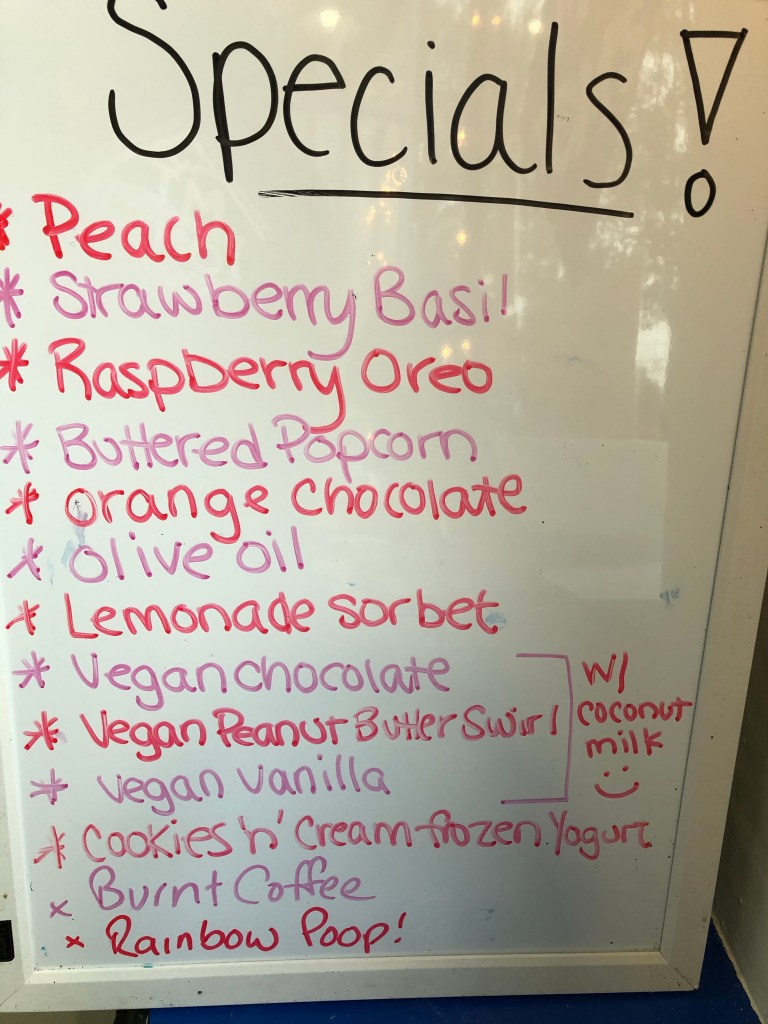 Specials!
* Peach
* Strawberry Basil
* Raspberry Oreo
* Buttered Popcorn
* orange chocolate
* olive oil
* Lemonade sorbet
* Vegan chocolate
* Vegan Peanut Butter Swirl
* vegan vanilla
w/
coconut
milk
* Cookies 'n' Cream frozen Yogurt
x Burnt Coffee
x Rainbow Poop!